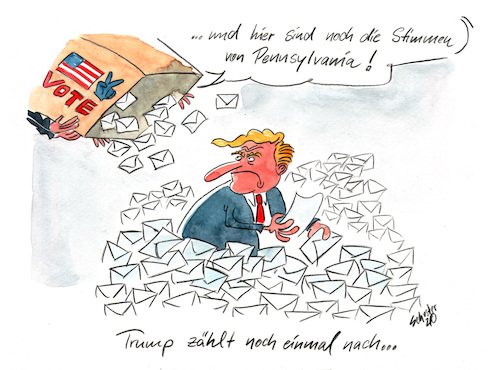 ...und hier sind noch die Stimmen
von Pennsylvania!
VOTE
Trump zählt noch einmal nach...